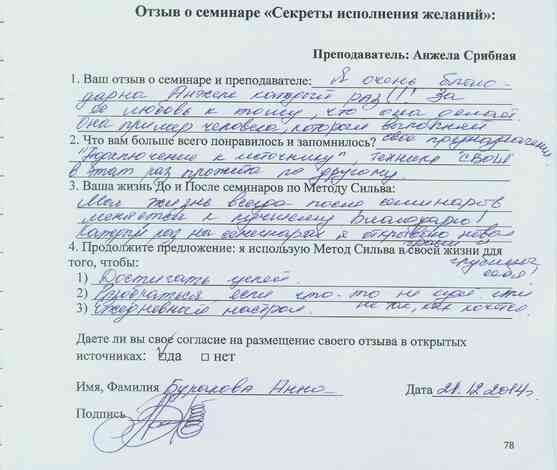 Отзыв о семинаре «Секреты исполнения желаний»:
Преподаватель: Анжела Срибная
1. Ваш отзыв о семинаре и преподавателе: Я очень благо-
дарна Анжеле который раз!!! За
её любовь к тому, что она делает.
Она пример человека, который выполняет
2. Что вам больше всего понравилось и запомнилось? своё предназначение
"Подключение к источнику", техника
в этот раз прошла по другому.
3. Ваша жизнь До и После семинаров по Методу Сильва:
Моя жизнь всегда после семинаров
меняется к лучшему Благодарю!
Каждый раз на семинарах я открываю новые
грани
4. Продолжите предложение: я использую Метод Сильва в своей жизни для
того, чтобы: глубины себя!
1) Достигать целей.
2) Разобраться, если что-то не идет или
3) Ежедневный настрой. не так, как хочется.
Даете ли вы свое согласие на размещение своего отзыва в открытых
источниках: ☑да □ нет
Имя, Фамилия Анна Дата 21.12.2014г.
Подпись
78